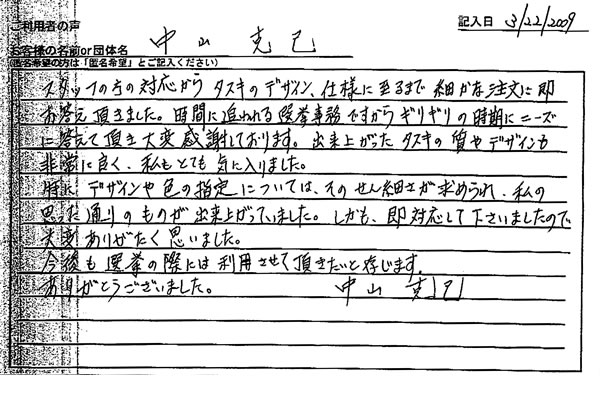 ご利用者の声
記入日 3/22/2009
お客様の名前or団体名 中山 克己
(匿名希望の方は「匿名希望」とご記入ください)
スタッフの方の対応から タスキのデザイン、仕様に至るまで 細かな注文に即
お答え頂きました。時間に追われる選挙事務ですからギリギリの時期にニーズ
に答えて頂き大変感謝しております。出来上がったタスキの質やデザインも
非常に良く、私もとても気に入りました。
特に デザインや色の指定については、そのせん細さが求められ、私の
思った通りのものが出来上がっていました。しかも、即対応して下さいましたので
大変ありがたく思いました。
今後も選挙の際には利用させて頂きたいと存じます。
ありがとうございました。 中山 克己